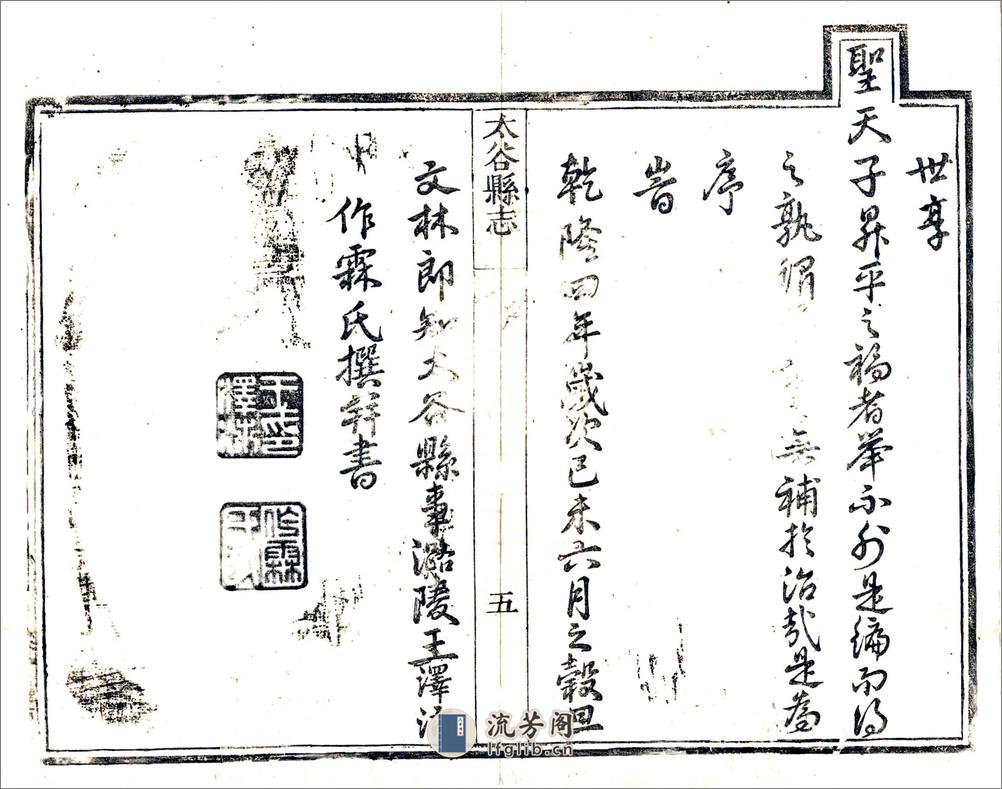 世享
聖天子昇平之福者举不外是编而得
之孰谓 無補扵治哉是為
序
旹
乾隆四年歲次己未六月之穀旦
太谷縣志
五
文林郎知太谷縣事潞陵王澤
作霖氏撰并書
作霖
流芳阁
lfglib.cn